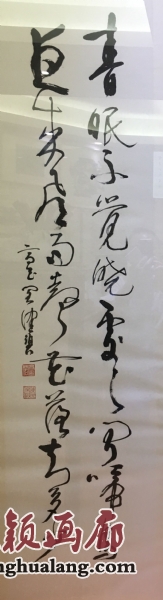 春眠不觉晓处处闻啼
鸟夜来风雨声花落知多少
颖画廊
nghualang.com